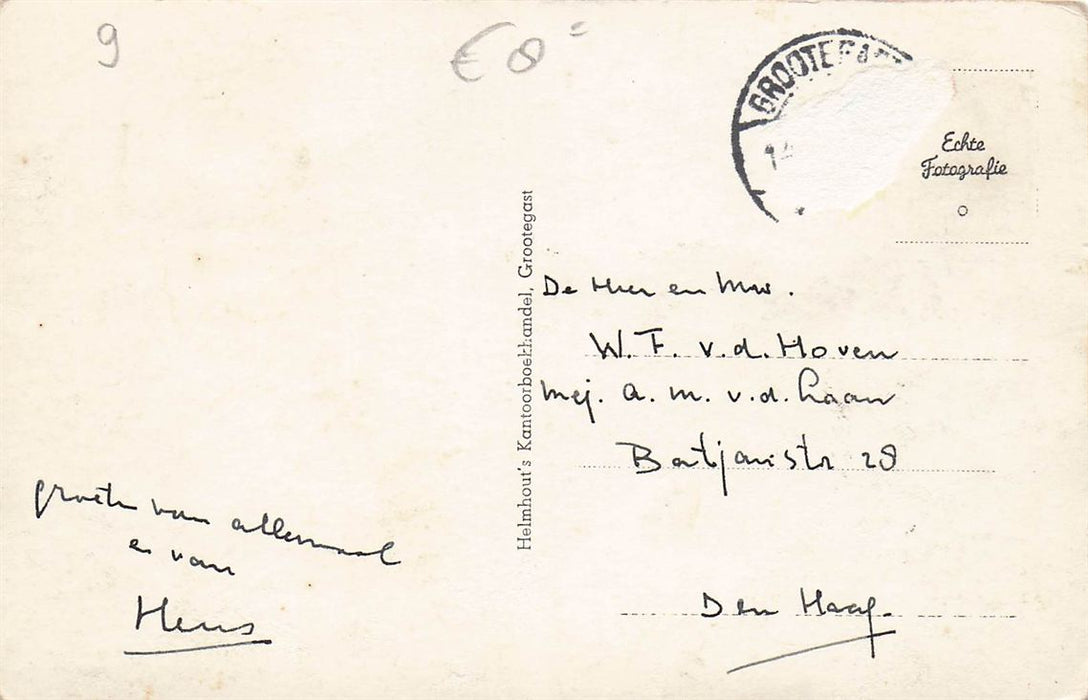 9
€ 8 =
GROOTEGAST
14
Echte
Fotografie
Helmhout's Kantoorboekhandel, Grootegast
De Heer en Mw.
W. F. v.d. Hoven
mej. A. M. v.d. Laan
Batjanstr 28
Den Haag.
groeten van allemaal
en van
Hens